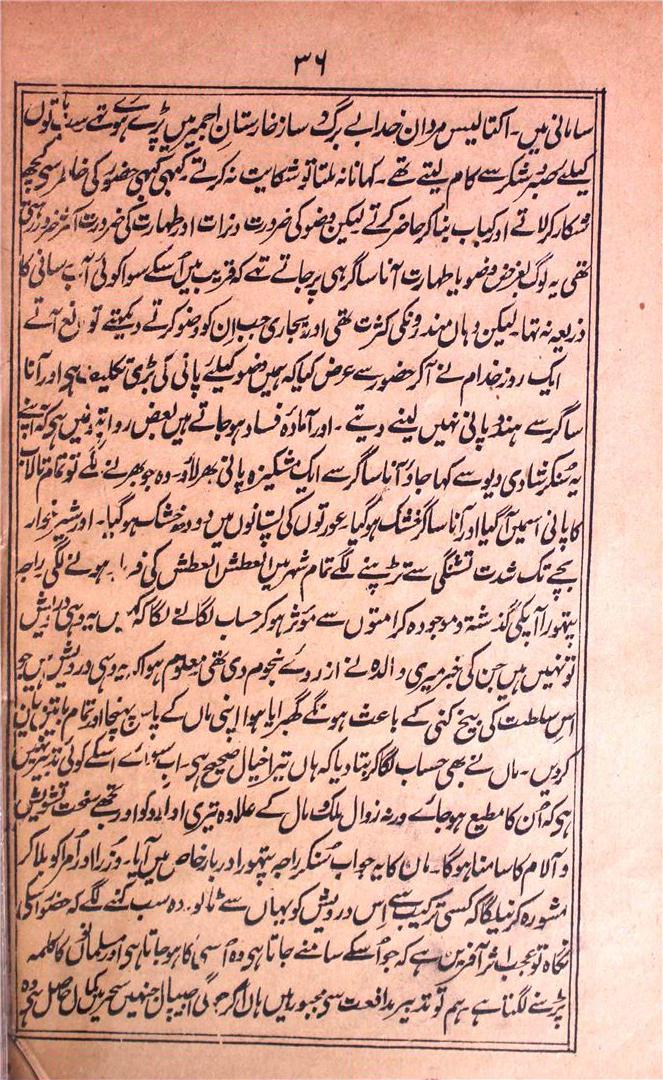 ۳۶
سامانی میں۔ اکتالیس مردانِ خدا بے برگ و ساز خارستانِ اجمیر میں پڑے ہوئے تھے سب باتوں
کیلئے صبر و شکر سے کام لیتے تھے۔ کھانا نہ ملتا تو شکایت نہ کرتے کبھی کبھی حضور کی خاطر سے کچھ
شکار کر لاتے اور کباب بنا کر حاضر کرتے لیکن وضو کی ضرورت دن رات اور طہارت کی ضرورت اکثر ضرور رہتی
تھی یہ لوگ بغرض وضو یا طہارت آنا ساگر ہی پر جاتے تھے کہ قریب میں اُسکے سوا کوئی آب رسانی کا
ذریعہ نہ تھا۔ لیکن وہاں ہندؤنکی کثرت تھی اور پجاری جب اِن کو وضو کرتے دیکھتے تو مانع آتے
ایک روز خدام نے آکر حضور سے عرض کیا کہ ہمیں وضو کیلئے پانی کی بڑی تکلیف ہے اور آنا
ساگر سے ہندو پانی نہیں لینے دیتے۔ اور آمادہ فساد ہوجاتے ہیں بعض روایتوں میں ہی کہ آپنے
یہ سُنکر شادی دیو سے کہا جاؤ آنا ساگر سے ایک مشکیزہ پانی بھر لاؤ۔ وہ جو بھرنے گئے تو تمام تالاب
کا پانی اسمیں آگیا اور آنا ساگر خشک ہوگیا۔ عورتوں کی پستانوں میں دودھ خشک ہوگیا۔ اور شیرخوار
بچے تک شدت تشنگی سے تڑپنے لگے تمام شہر میں العطش العطش کی فریاد ہونے لگی راجہ
پتھورا آپکی گذشتہ و موجودہ کرامتوں سے مؤثر ہوکر حساب لگانے لگا کہ کہیں یہ وہی درویش
تو نہیں ہیں جن کی خبر میری والدہ نے از روئے نجوم دی تھی معلوم ہوا کہ یہ وہی درویش ہیں جو
اس سلطنت کی بیخ کنی کے باعث ہونگے گھبرایا ہوا اپنی ماں کے پاس پہنچا اور تمام باتیں بیان
کردیں۔ ماں نے بھی حساب لگا کر بتا دیا کہ ہاں تیرا خیال صحیح ہی۔ اب سوائے اسکے کوئی تدبیر نہیں
ہی کہ اُن کا مطیع ہوجائے ورنہ زوال ملک و مال کے علاوہ تیری اولاد کو اور تجھے سخت تشویش
و آلام کا سامنا ہوگا۔ ماں کا یہ جواب سُنکر راجہ پتھورا دربار خاص میں آیا۔ وزرا و اُمرا کو بلا کر
مشورہ کرنے لگا کہ کسی ترکیب سے اِس درویش کو یہاں سے ٹالو۔ وہ سب کہنے لگے کہ حضور اسکی
نگاہ تو عجب اثر آفریں ہے کہ جو اُسکے سامنے جاتا ہی وہ اُسی کا ہوجاتا ہی اور مسلمانوں کا کلمہ
پڑھنے لگتا ہے ہم تو تدبیر مدافعت سے مجبور ہیں ہاں اگر جوگی اجیپال جنہیں سحر میں کمال حاصل ہی وہ